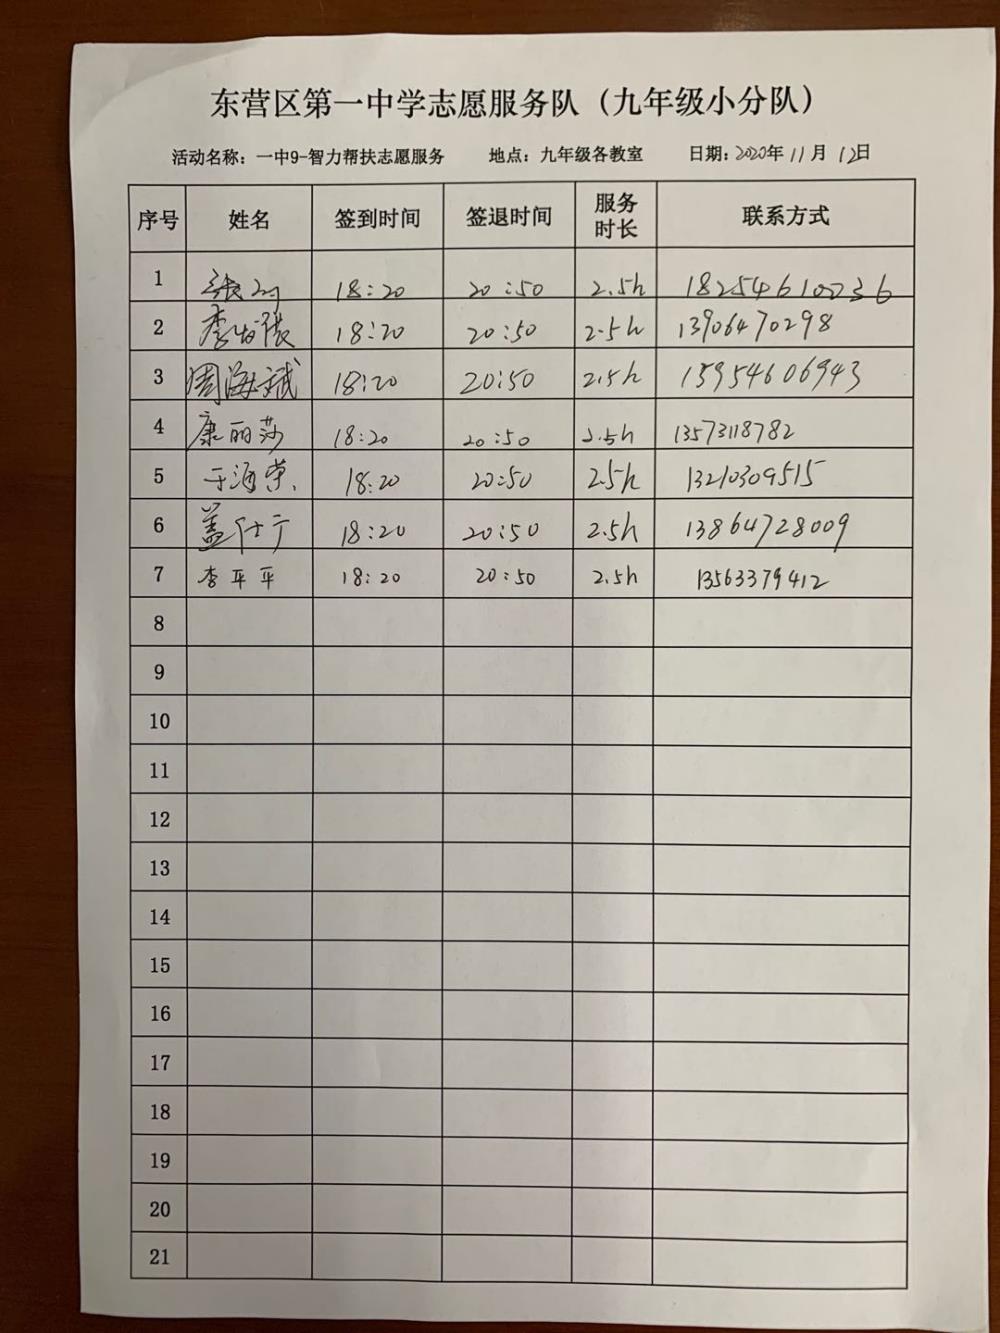 东营区第一中学志愿服务队（九年级小分队）
活动名称：一中9-智力帮扶志愿服务 地点：九年级各教室 日期：2020年11月12日
序号 姓名 签到时间 签退时间 服务时长 联系方式
1 张 18:20 20:50 2.5h 18254610036
2 李 18:20 20:50 2.5h 13906470298
3 周海斌 18:20 20:50 2.5h 13954606943
4 康丽莎 18:20 20:50 2.5h 13573118782
5 于海荣 18:20 20:50 2.5h 13210309515
6 盖 18:20 20:50 2.5h 13864728009
7 李平平 18:20 20:50 2.5h 13563379412
8
9
10
11
12
13
14
15
16
17
18
19
20
21